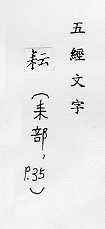 五經文字
耘（耒部，P.35）